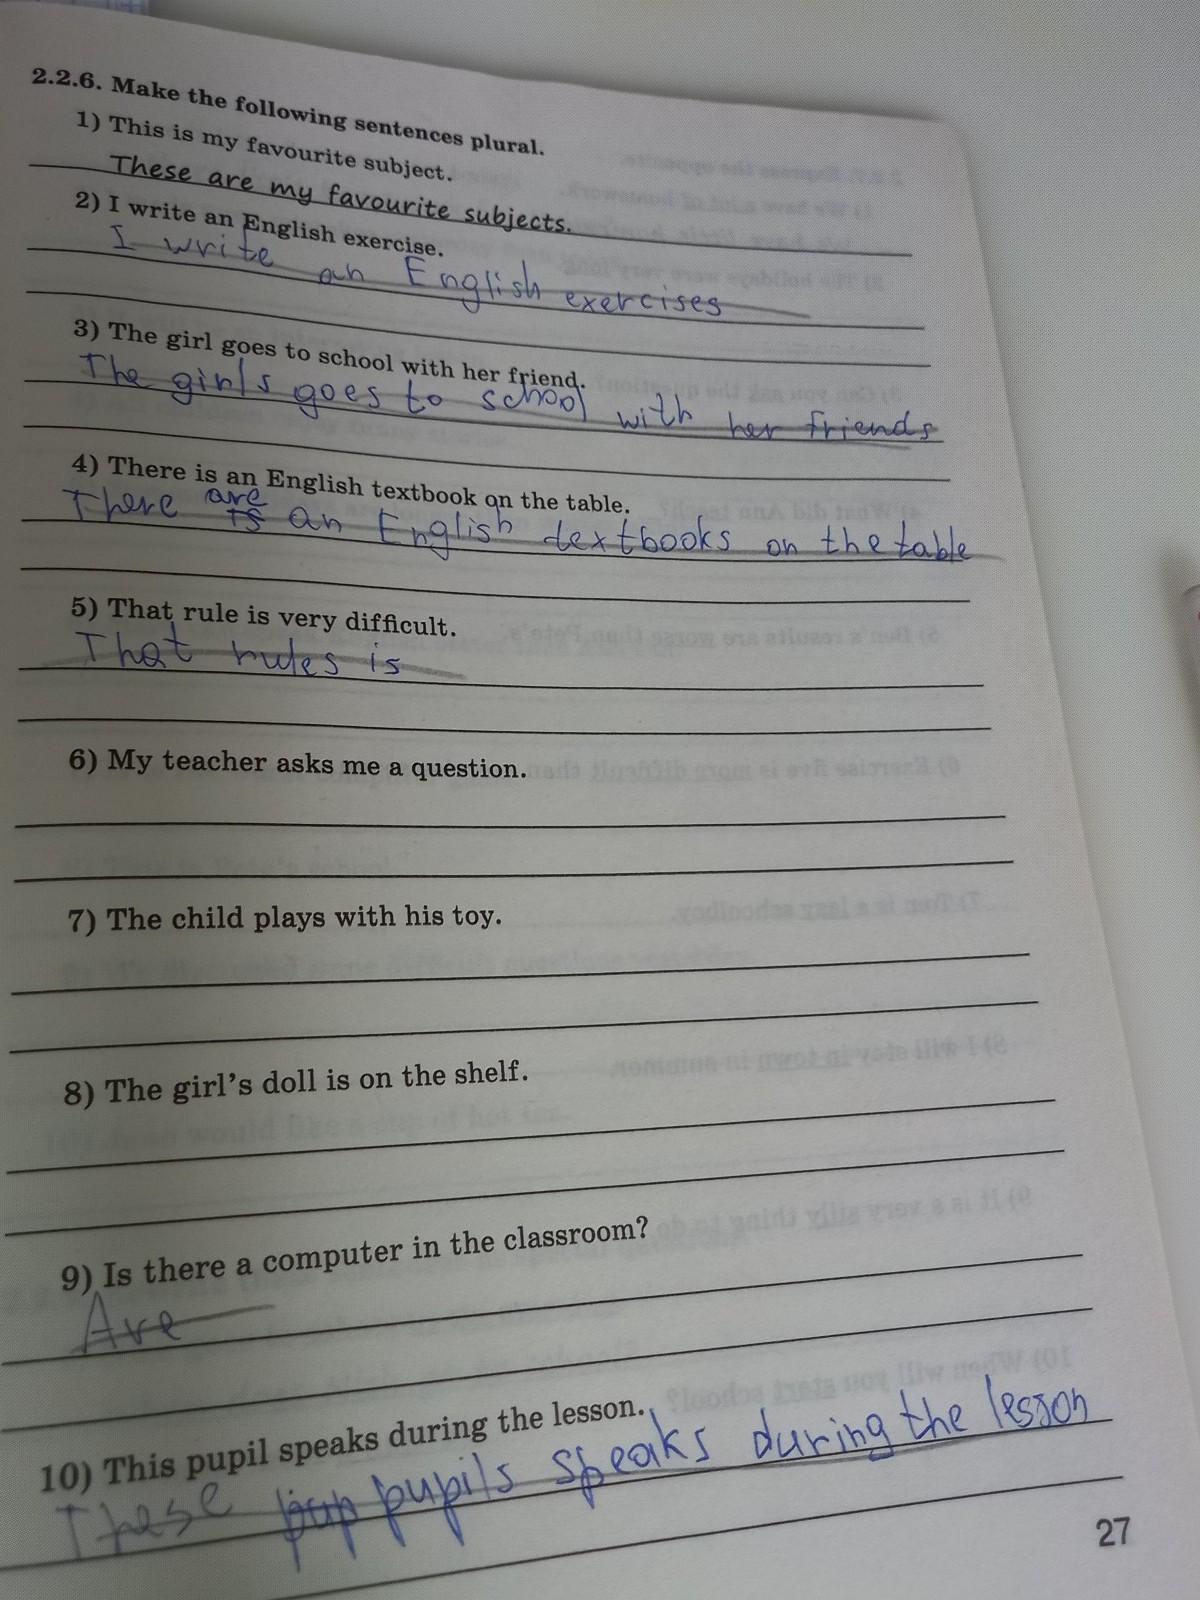 2.2.6. Make the following sentences plural.
1) This is my favourite subject.
These are my favourite subjects.
2) I write an English exercise.
I write an English exercises
3) The girl goes to school with her friend.
The girls goes to school with her friends
4) There is an English textbook on the table.
are
There is an English textbooks on the table
5) That rule is very difficult.
That rules is
6) My teacher asks me a question.
7) The child plays with his toy.
8) The girl's doll is on the shelf.
9) Is there a computer in the classroom?
Are
10) This pupil speaks during the lesson.
These pup pupils speaks during the lesson
27